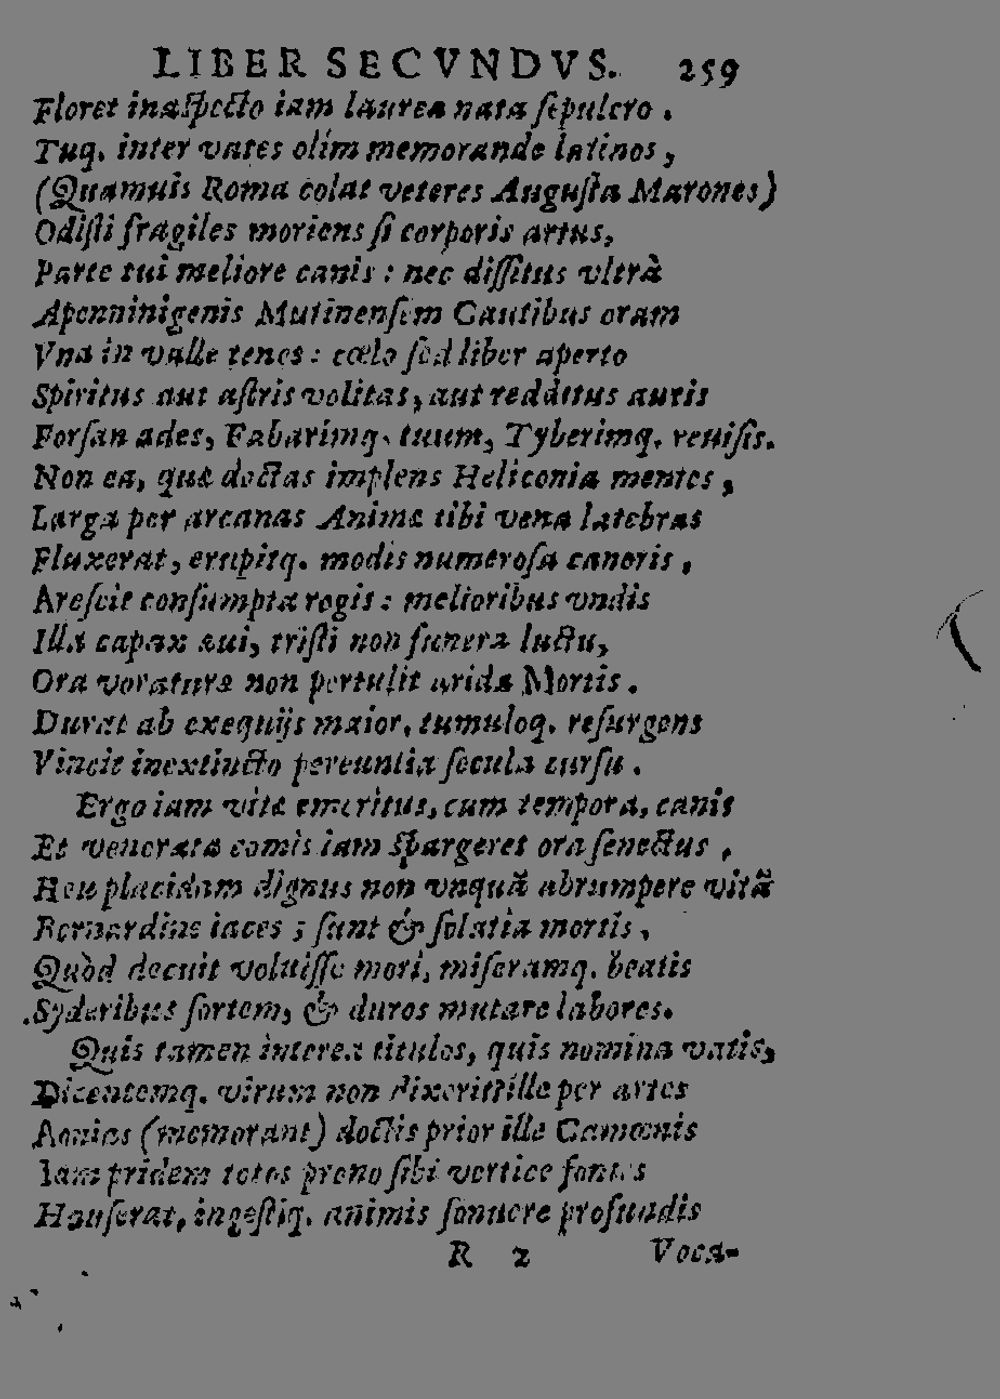 LIBER SECVNDVS. 259
Floret inaſpecto iam laurea nata ſepulcro.
Tuq. inter vates olim memorande latinos,
(Quamuis Roma colat veteres Auguſta Marones)
Odiſti fragiles moriens ſi corporis artus,
Parte tui meliore canis: nec diſſitus vltrà
Apenninigenis Mutinenſem Cautibus oram
Vna in valle tenes: cœlo ſed liber aperto
Spiritus aut aſtris volitas, aut redditus auris
Forſan ades, Fabarimq. tuum, Tyberimq. reuiſis.
Non ea, quæ doctas implens Heliconia mentes,
Larga per arcanas Animæ tibi vena latebras
Fluxerat, erupitq. modis numeroſa canoris,
Areſcit conſumpta rogis: melioribus vndis
Illa capax æui, triſti non funera luctu,
Ora voraturæ non pertulit arida Mortis.
Durat ab exequijs maior, tumuloq. reſurgens
Vincit inextincto pereuntia ſecula curſu.
Ergo iam vitæ emeritus, cum tempora, canis
Et venerata comis iam ſpargeret ora ſenectus,
Heu placidam dignus non vnquā abrumpere vitā
Bernardine iaces; ſunt & ſolatia mortis,
Quòd decuit voluiſſe mori, miſeramq. beatis
Syderibus ſortem, & duros mutare labores.
Quis tamen interea titulos, quis nomina vatis,
Dicentemq. virum non dixerit? ille per artes
Aonias (memorant) doctis prior ille Camœnis
Iam pridem totos prono ſibi vertice fontes
Hauſerat, ingeſtiq. animis ſonuere profundis
R 2 Voca-